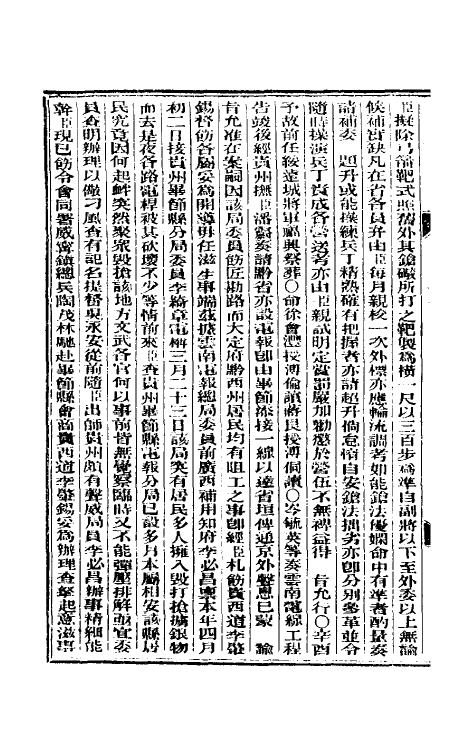 臣擬除弓箭靶式照舊外其鎗礮所打之靶製爲橫一尺以三百步爲準自副將以下至外委以上無論
候補實缺凡在省各員弁由臣每月親校一次外標亦應輪流調考如能鎗法優嫻命中有準者酌量奏
請補委　題升或能操練兵丁精熟確有把握者亦請超升倘怠惰自安鎗法拙劣亦卽分別參革並令
隨時操演兵丁責成各營送考亦由臣親試明定賞罰嚴加勸懲於營伍不無裨益得　旨允行〇辛酉
予故前任綏遠城將軍福興祭葬〇命徐會灃授溥倫讀蔣艮授溥侗讀〇岑毓英等奏雲南電線工程
告竣後經貴州撫臣潘霨奏請黔省亦設電報卽由畢節添接一線以達省垣俾通京外聲息已蒙　諭
旨允准在案詞因該局委員飭匠勘路而大定府黔西州居民均有阻工之事卽經臣札飭貴西道李肇
錫督飭各屬妥爲開導毋任滋生事端茲據雲南電報總局委員前廣西補用知府李必昌稟本年四月
初二日接貴州畢節縣分局委員李綺章電稱三月二十三日該局突有居民多人擁入毀打搶擄銀物
而去是夜各路電桿被其砍壞不少等情前來臣查貴州畢節縣電報分局已設多月本屬相安該縣居
民究竟因何起衅突然聚衆毀搶該地方文武各官何以事前皆無覺察臨時又不能彈壓排解亟宜委
員查明辦理以儆刁風查有記名提督吳永安從前隨臣出師貴州頗有聲威局員李必昌辦事精細能
幹臣現已飭令會同署威甯鎮總兵陶茂林馳赴畢節縣會商貴西道李肇錫妥爲辦理查拏起意滋事